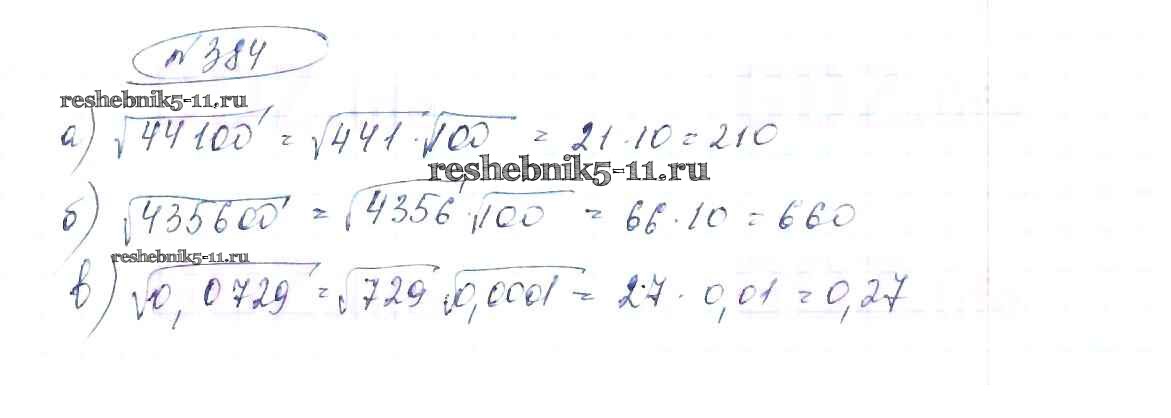 №384
reshebnik5-11.ru
а) √44100 = √441 · √100 = 21 · 10 = 210
reshebnik5-11.ru
б) √435600 = √4356 · √100 = 66 · 10 = 660
reshebnik5-11.ru
в) √0,0729 = √729 √0,0001 = 27 · 0,01 = 0,27